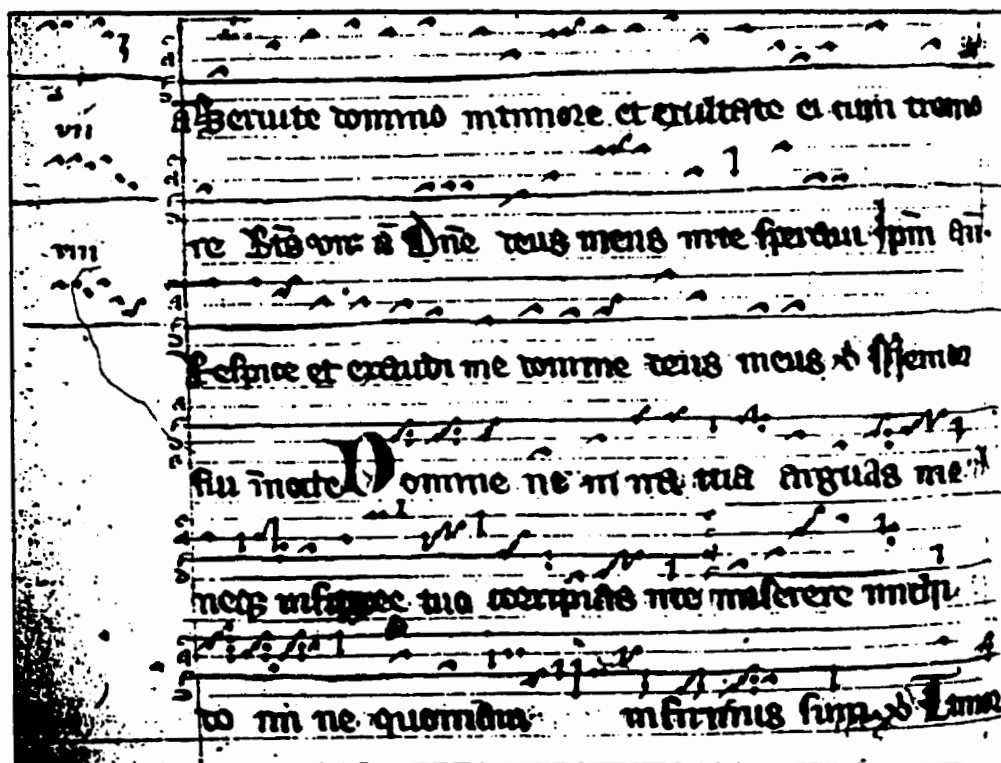 a Seruite domino in timore et exultate ei cum tremo
vii
re Bt̄s vir a͞ Dn̄e deus meus in te speraui
viii
Respice et exaudi me domine deus meus
Domine ne in ira tua arguas me
neq; in furore tua corripias me miserere michi
do mi ne quoniam infirmus sum Timor